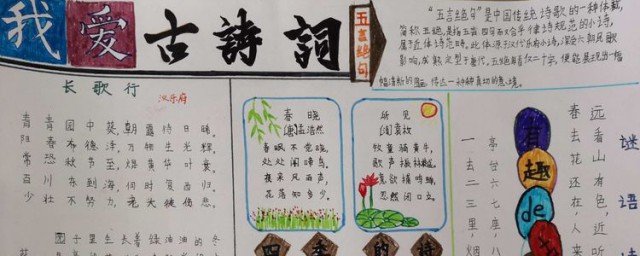 我爱古詩詞
五言绝句
“五言绝句”是中国传统诗歌的一种体裁,
简称五绝,是指五言四句而又合乎律诗规范的小诗,
属于近体诗范畴。此体源于汉代乐府小诗,深受六朝民歌
影响,成熟定型于唐代。五绝每首仅二十字,便能展现出一幅
幅清新的图画,传达一种种真切的意境。
长歌行
汉乐府
青青园中葵,朝露待日晞。
阳春布德泽,万物生光辉。
常恐秋节至,焜黄华叶衰。
百川东到海,何时复西归。
少壮不努力,老大徒伤悲。
园子里生长着绿油油的
春晓
[唐]孟浩然
春眠不觉晓,
处处闻啼鸟。
夜来风雨声,
花落知多少。
所见
[清]袁枚
牧童骑黄牛,
歌声振林樾。
意欲捕鸣蝉,
忽然闭口立。
四季的诗
一去二三里,烟
亭台六七座,八
有趣de
春去花还在,人来
远看山有色,近听
谜语诗